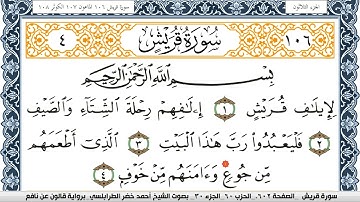 الجزء الثلاثون
سورة قريش ١٠٦ الماعون ١٠٧ الكوثر ١٠٨
١٠٦ سُورَةُ قُرَيْشٍ ٤
بِسْمِ اللَّهِ الرَّحْمَٰنِ الرَّحِيمِ
لِإِيلَٰفِ قُرَيْشٍ ١ إِۦلَٰفِهِمْ رِحْلَةَ الشِّتَآءِ وَالصَّيْفِ
٢ فَلْيَعْبُدُواْ رَبَّ هَٰذَا الْبَيْتِ ٣ الَّذِے أَطْعَمَهُم
مِّن جُوعٍ وَءَامَنَهُم مِّنْ خَوْفٍ ٤
سورة قريش الصفحة ٦٠٢ الحزب ٦٠ الجزء ٣٠ بصوت الشيخ أحمد خضر الطرابلسي برواية قالون عن نافع